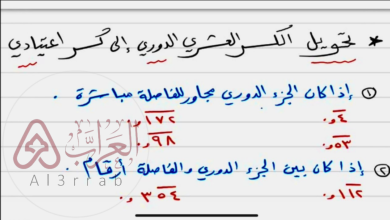 * تحويل الكسر العشري الدوري إلى كسر اعتيادي
① إذا كان الجزء الدوري مجاور للفاصلة مباشرة .
٠و٤̅    ٠و١٧٢̅
٠و٥٣̅    ٠و٩٨̅
② إذا كان بين الجزء الدوري والفاصلة أرقام .
٠و١١٢̅    ٠و٣٥٤̅
العراب
Al3rrab